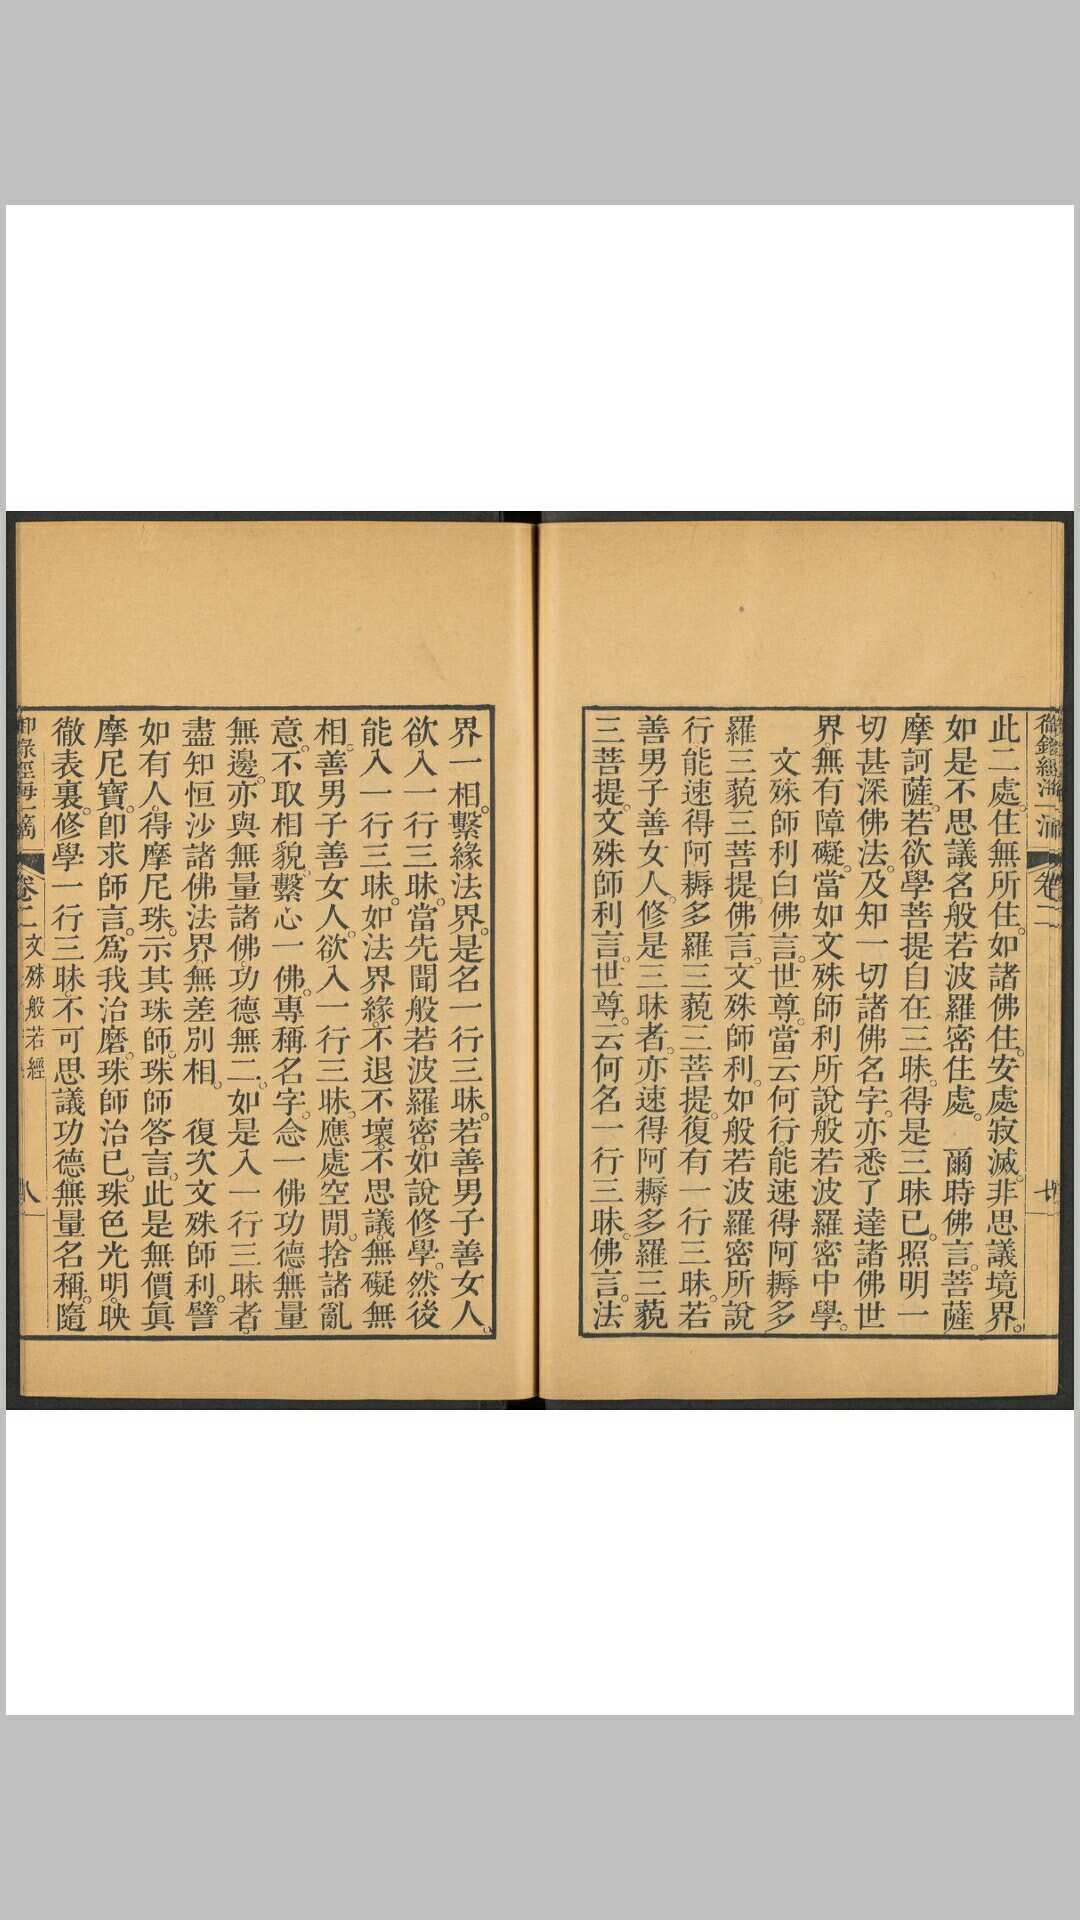 此二處。住無所住。如諸佛住。安處寂滅。非思議境界。
如是不思議。名般若波羅密住處。　爾時佛言。菩薩
摩訶薩。若欲學菩提自在三昧。得是三昧已。照明一
切甚深佛法。及知一切諸佛名字。亦悉了達諸佛世
界。無有障礙。當如文殊師利所說。般若波羅密中學。
文殊師利白佛言。世尊。當云何行。能速得阿耨多
羅三藐三菩提。佛言。文殊師利。如般若波羅密所說
行。能速得阿耨多羅三藐三菩提。復有一行三昧。若
善男子善女人。修是三昧者。亦速得阿耨多羅三藐
三菩提。文殊師利言。世尊。云何名一行三昧。佛言。法
界一相。繫緣法界。是名一行三昧。若善男子善女人。
欲入一行三昧。當先聞般若波羅密。如說修學。然後
能入一行三昧。如法界緣。不退不壞。不思議。無礙無
相。善男子善女人。欲入一行三昧。應處空閒。捨諸亂
意。不取相貌。繫心一佛。專稱名字。念一佛功德。無量
無邊。亦與無量諸佛功德無二。如是入一行三昧者。
盡知恒沙諸佛法界。無差別相。　復次文殊師利。譬
如有人。得摩尼珠。示其珠師。珠師答言。此是無價眞
摩尼寶。卽求師言。爲我治磨。珠師治已。珠色光明。映
徹表裏。修學一行三昧。不可思議功德無量名稱。隨
卷二 文殊般若經 八